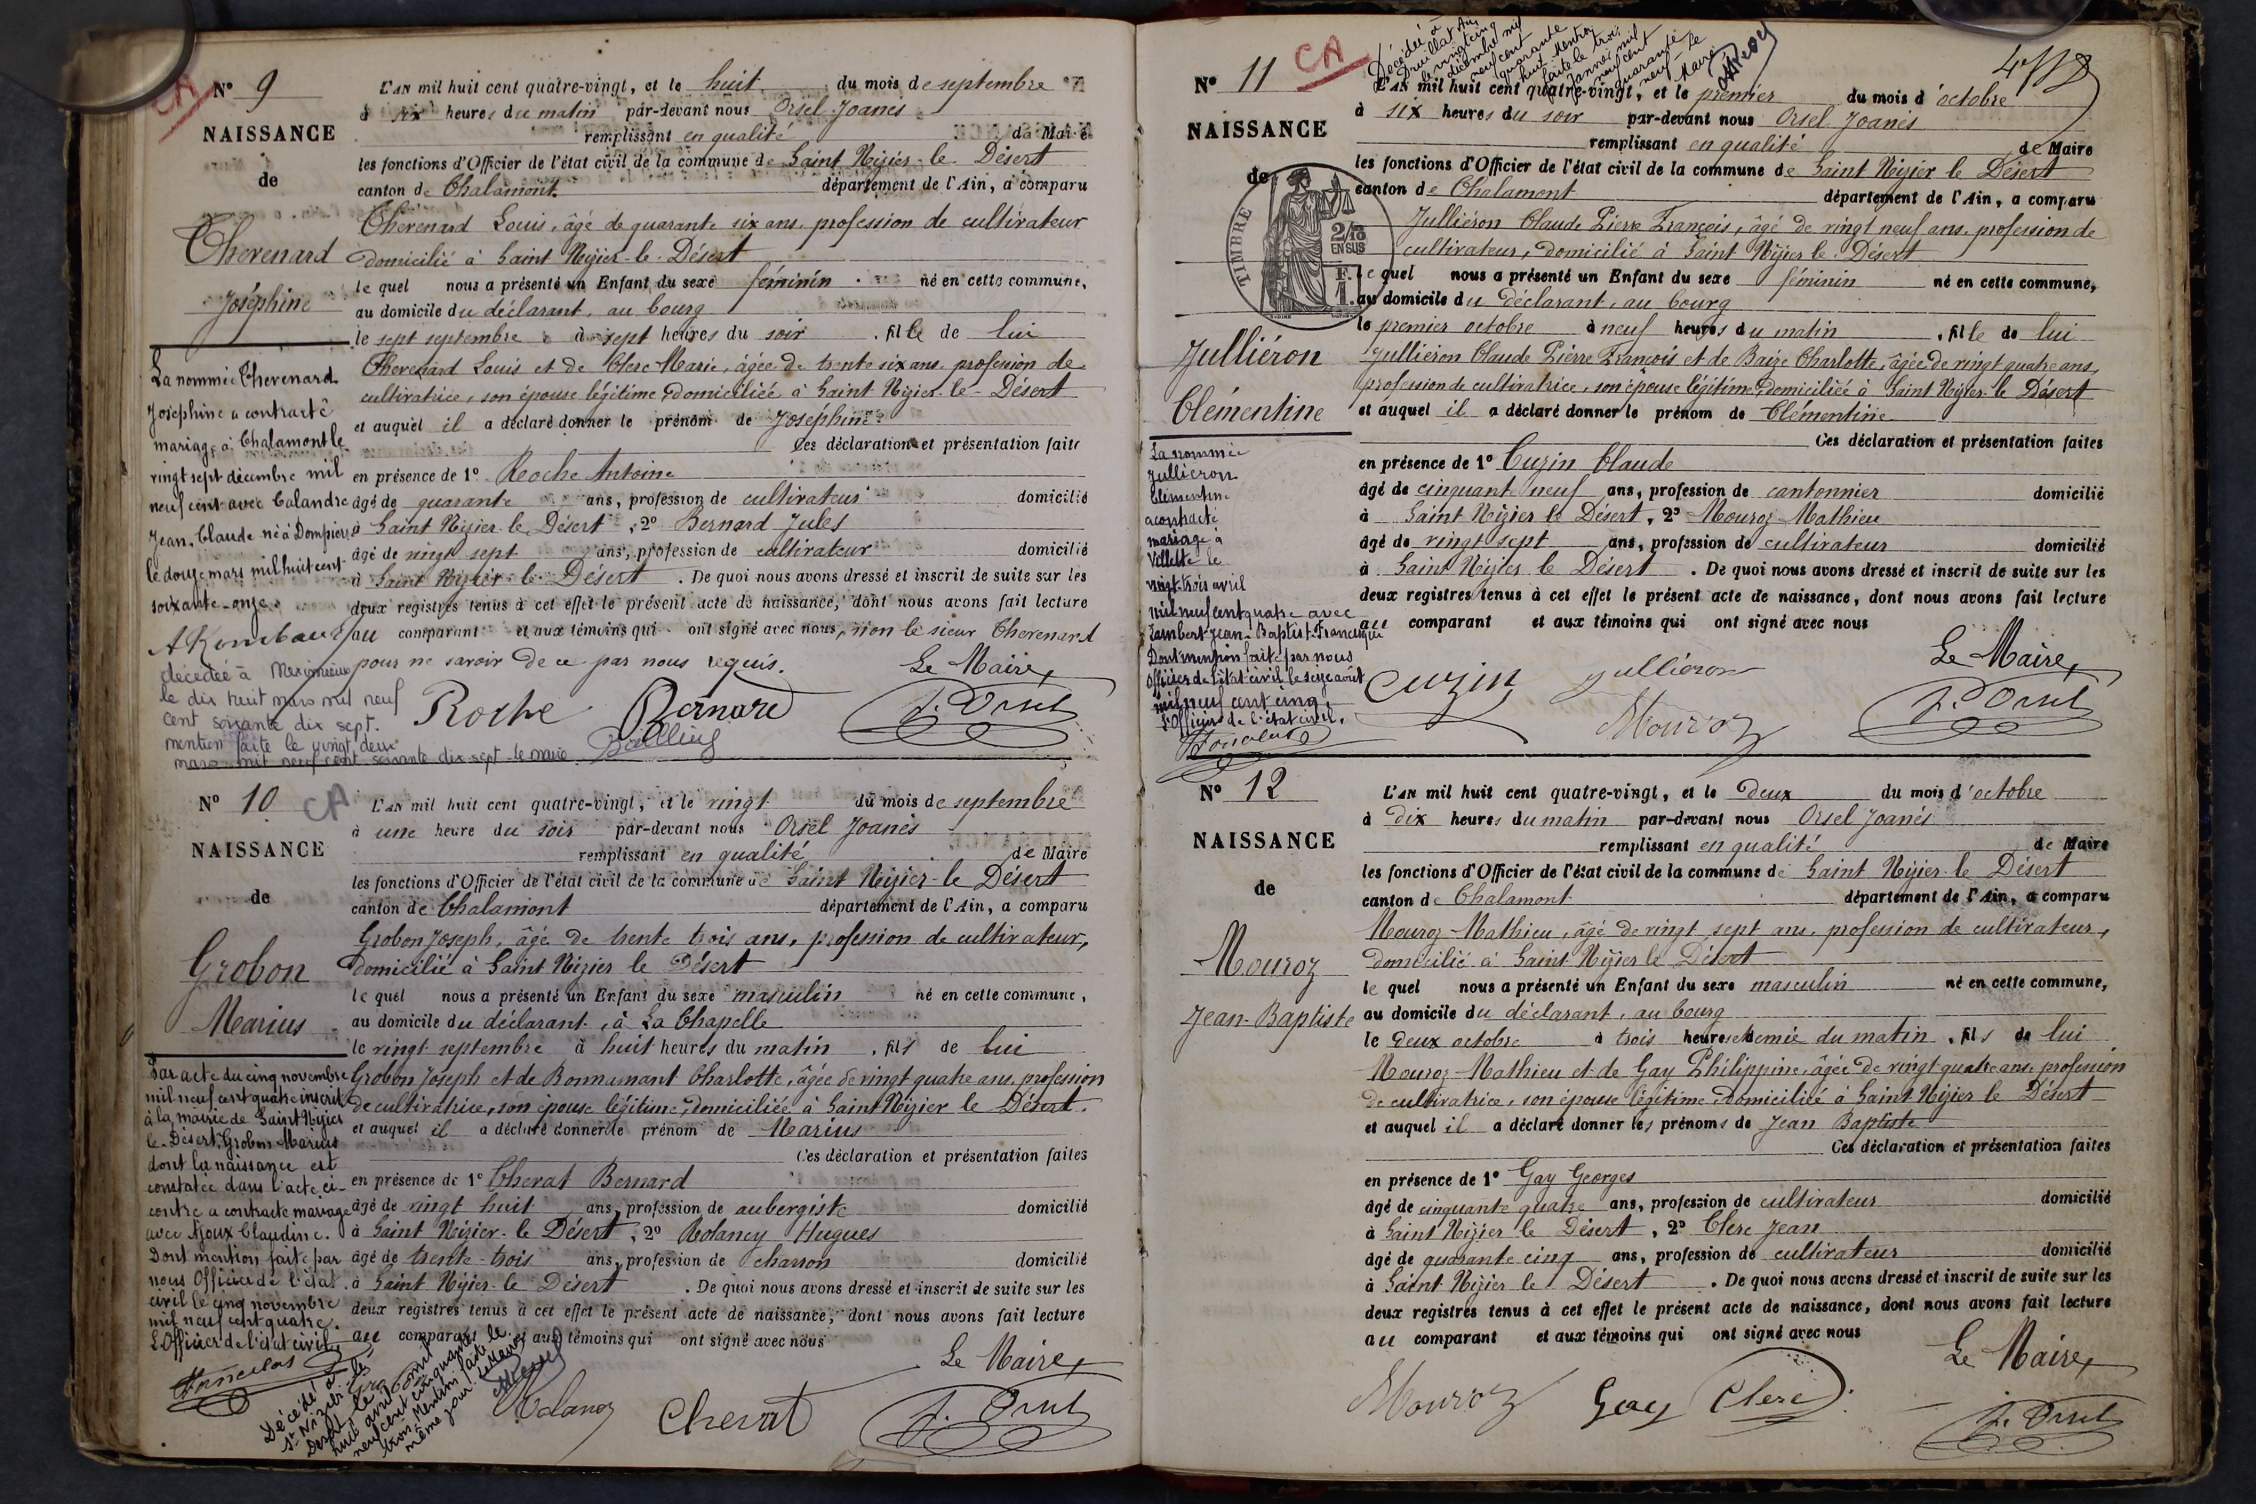 CA
N° 9
NAISSANCE
de
Thevenard
Joséphine
La nommée Thevenard
Joséphine a contracté
mariage à Chalamont le
vingt sept décembre mil
neuf cent avec Calandre
Jean, Claude né à Dompierre
le douze mars mil huit cent
soixante-onze.
décédée à Meximieux
le dix huit mars mil neuf
cent soixante dix sept.
mention faite le vingt deux
mars mil neuf cent soixante dix sept le maire
L'AN mil huit cent quatre-vingt, et le huit du mois de septembre
à six heures du matin par-devant nous Orsel Joanès
remplissant en qualité de Maire
les fonctions d'Officier de l'état civil de la commune de Saint Nizier-le-Désert
canton de Chalamont département de l'Ain, a comparu
Thevenard Louis, âgé de quarante six ans, profession de cultivateur
domicilié à Saint Nizier-le-Désert
le quel nous a présenté un Enfant du sexe féminin né en cette commune,
au domicile du déclarant, au bourg
le sept septembre à sept heures du soir, fille de lui
Thevenard Louis et de Clerc Marie, âgée de trente six ans, profession de
cultivatrice, son épouse légitime, domiciliée à Saint Nizier-le-Désert
et auquel il a déclaré donner le prénom de Joséphine
Ces déclaration et présentation faites
en présence de 1° Roche Antoine
âgé de quarante ans, profession de cultivateur domicilié
à Saint Nizier-le-Désert, 2° Bernard Jules
âgé de vingt sept ans, profession de cultivateur domicilié
à Saint Nizier-le-Désert. De quoi nous avons dressé et inscrit de suite sur les
deux registres tenus à cet effet le présent acte de naissance, dont nous avons fait lecture
au comparant et aux témoins qui ont signé avec nous, non le sieur Thevenard
pour ne savoir de ce par nous requis.
Le Maire,
Roche Bernard J. Orsel
N° 10 CA
NAISSANCE
de
Grobon
Marius
Par acte du cinq novembre
mil neuf cent quatre inscrit
à la mairie de Saint Nizier
le-Désert, Grobon Marius
dont la naissance est
constatée dans l'acte ci-
contre a contracté mariage
avec Moux Claudine.
Dont mention faite par
nous Officier de l'état
civil le cinq novembre
mil neuf cent quatre.
L'Officier de l'état civil,
Décédé à
St Nizier-le-
Désert, le
huit avril mil
neuf cent cinquante
trois. Mention faite le
même jour. Le Maire
L'AN mil huit cent quatre-vingt, et le vingt du mois de septembre
à une heure du soir par-devant nous Orsel Joanès
remplissant en qualité de Maire
les fonctions d'Officier de l'état civil de la commune de Saint Nizier-le-Désert
canton de Chalamont département de l'Ain, a comparu
Grobon Joseph, âgé de trente trois ans, profession de cultivateur,
domicilié à Saint Nizier le Désert
le quel nous a présenté un Enfant du sexe masculin né en cette commune,
au domicile du déclarant, à La Chapelle
le vingt septembre à huit heures du matin, fils de lui
Grobon Joseph et de Bonnamant Charlotte, âgée de vingt quatre ans, profession
de cultivatrice, son épouse légitime, domiciliée à Saint Nizier le Désert.
et auquel il a déclaré donner le prénom de Marius
Ces déclaration et présentation faites
en présence de 1° Cherat Bernard
âgé de vingt huit ans, profession de aubergiste domicilié
à Saint Nizier-le-Désert, 2° Molancy Hugues
âgé de trente-trois ans, profession de charron domicilié
à Saint Nizier-le-Désert. De quoi nous avons dressé et inscrit de suite sur les
deux registres tenus à cet effet le présent acte de naissance, dont nous avons fait lecture
au comparant et aux témoins qui ont signé avec nous
Le Maire,
Cherat J. Orsel
N° 11 CA
NAISSANCE
de
TIMBRE
2/10
EN SUS
F.
1.
Julliéron
Clémentine
La nommée
Julliéron
Clémentine
a contracté
mariage à
Villette le
vingt-trois avril
mil neuf cent quatre avec
Lambert Jean-Baptiste Françisque
Dont mention faite par nous
Officier de l'état civil le seize août
mil neuf cent cinq.
L'Officier de l'état civil,
Décédée à
Druillat Ain
le vingt cinq
décembre mil
neuf cent
quarante
huit. Mention
faite le trois
janvier mil
neuf cent
quarante
neuf. Le
Maire
L'AN mil huit cent quatre-vingt, et le premier du mois d'octobre
à six heures du soir par-devant nous Orsel Joanès
remplissant en qualité de Maire
les fonctions d'Officier de l'état civil de la commune de Saint Nizier le Désert
canton de Chalamont département de l'Ain, a comparu
Julliéron Claude Pierre François, âgé de vingt neuf ans, profession de
cultivateur, domicilié à Saint Nizier le Désert
le quel nous a présenté un Enfant du sexe féminin né en cette commune,
au domicile du déclarant, au bourg
le premier octobre à neuf heures du matin, fille de lui
Julliéron Claude Pierre François et de Baize Charlotte, âgée de vingt quatre ans,
profession de cultivatrice, son épouse légitime, domiciliée à Saint Nizier le Désert
et auquel il a déclaré donner le prénom de Clémentine
Ces déclaration et présentation faites
en présence de 1° Cuzin Claude
âgé de cinquante neuf ans, profession de cantonnier domicilié
à Saint Nizier le Désert, 2° Mouroz Mathieu
âgé de vingt sept ans, profession de cultivateur domicilié
à Saint Nizier le Désert. De quoi nous avons dressé et inscrit de suite sur les
deux registres tenus à cet effet le présent acte de naissance, dont nous avons fait lecture
au comparant et aux témoins qui ont signé avec nous
Le Maire,
Cuzin Julliéron
Mouroz J. Orsel
N° 12
NAISSANCE
de
Mouroz
Jean-Baptiste
L'AN mil huit cent quatre-vingt, et le deux du mois d'octobre
à dix heures du matin par-devant nous Orsel Joanès
remplissant en qualité de Maire
les fonctions d'Officier de l'état civil de la commune de Saint Nizier-le-Désert
canton de Chalamont département de l'Ain, a comparu
Mouroz Mathieu, âgé de vingt sept ans, profession de cultivateur,
domicilié à Saint Nizier le Désert
le quel nous a présenté un Enfant du sexe masculin né en cette commune,
au domicile du déclarant, au bourg
le deux octobre à trois heures et demie du matin, fils de lui
Mouroz Mathieu et de Gay Philippine, âgée de vingt quatre ans, profession
de cultivatrice, son épouse légitime, domiciliée à Saint Nizier le Désert
et auquel il a déclaré donner les prénoms de Jean Baptiste
Ces déclaration et présentation faites
en présence de 1° Gay Georges
âgé de cinquante quatre ans, profession de cultivateur domicilié
à Saint Nizier le Désert, 2° Clerc Jean
âgé de quarante cinq ans, profession de cultivateur domicilié
à Saint Nizier le Désert. De quoi nous avons dressé et inscrit de suite sur les
deux registres tenus à cet effet le présent acte de naissance, dont nous avons fait lecture
au comparant et aux témoins qui ont signé avec nous
Le Maire,
Mouroz Gay Clerc J. Orsel